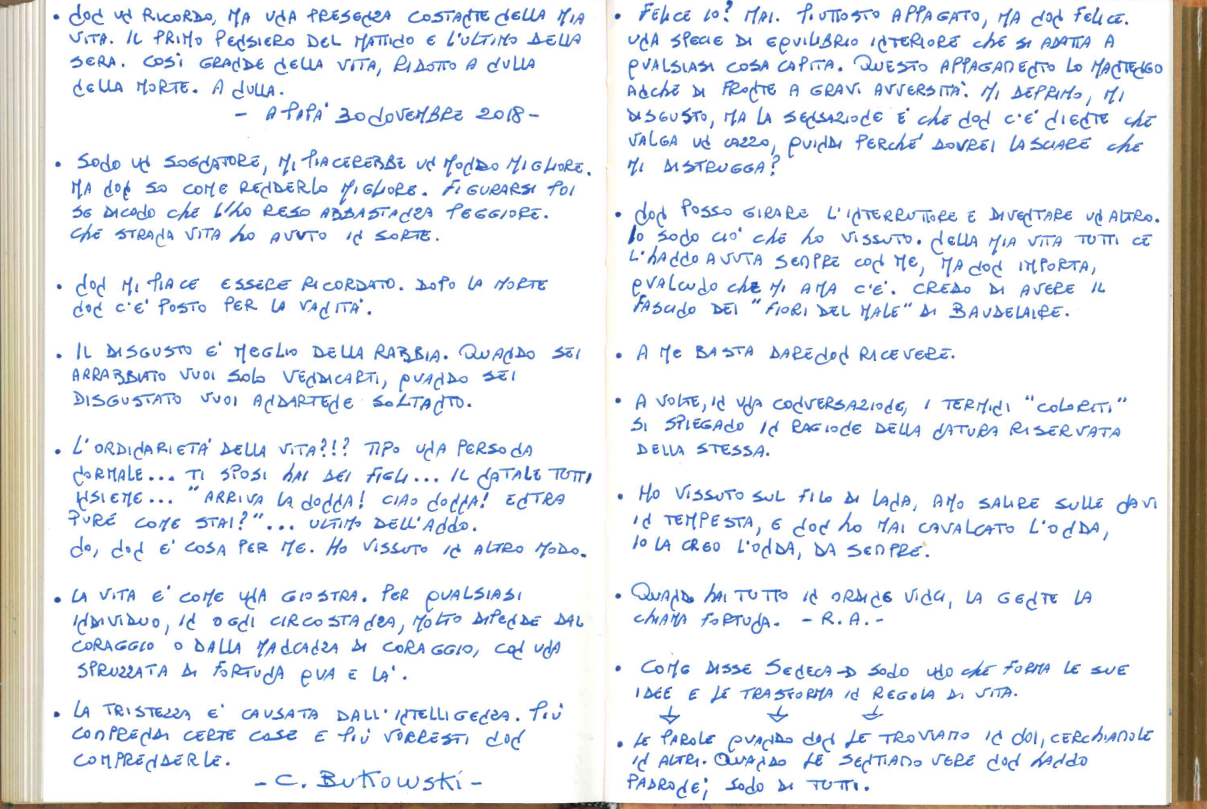 • NON UN RICORDO, MA UNA PRESENZA COSTANTE DELLA MIA
VITA. IL PRIMO PENSIERO DEL MATTINO E L'ULTIMO DELLA
SERA. COSÌ GRANDE NELLA VITA, RIDOTTO A NULLA
NELLA MORTE. A NULLA.
- A PAPA' 30 NOVEMBRE 2018 -
• SONO UN SOGNATORE, MI PIACEREBBE UN MONDO MIGLIORE.
MA NON SO COME RENDERLO MIGLIORE. FIGURARSI POI
SE DICONO CHE L'HO RESO ABBASTANZA PEGGIORE.
CHE STRANA VITA HO AVUTO IN SORTE.
• NON MI PIACE ESSERE RICORDATO. DOPO LA MORTE
NON C'E' POSTO PER LA VANITA'.
• IL DISGUSTO E' MEGLIO DELLA RABBIA. QUANDO SEI
ARRABBIATO VUOI SOLO VENDICARTI, QUANDO SEI
DISGUSTATO VUOI ANDARTENE SOLTANTO.
• L'ORDINARIETA' DELLA VITA?!? TIPO UNA PERSONA
NORMALE... TI SPOSI HAI DEI FIGLI... IL NATALE TUTTI
INSIEME... "ARRIVA LA NONNA! CIAO NONNA! ENTRA
PURE COME STAI?"... ULTIMO DELL'ANNO.
NO, NON E' COSA PER ME. HO VISSUTO IN ALTRO MODO.
• LA VITA E' COME UNA GIOSTRA. PER QUALSIASI
INDIVIDUO, IN OGNI CIRCOSTANZA, MOLTO DIPENDE DAL
CORAGGIO O DALLA MANCANZA DI CORAGGIO, CON UNA
SPRUZZATA DI FORTUNA QUA E LA'.
• LA TRISTEZZA E' CAUSATA DALL'INTELLIGENZA. PIÙ
COMPRENDI CERTE COSE E PIÙ VORRESTI NON
COMPRENDERLE.
- C. BUKOWSKI -
• FELICE IO? MAI. PIUTTOSTO APPAGATO, MA NON FELICE.
UNA SPECIE DI EQUILIBRIO INTERIORE CHE SI ADATTA A
QUALSIASI COSA CAPITA. QUESTO APPAGAMENTO LO MANTENGO
ANCHE DI FRONTE A GRAVI AVVERSITA'. MI DEPRIMO, MI
DISGUSTO, MA LA SENSAZIONE E' CHE NON C'E' NIENTE CHE
VALGA UN CAZZO, QUINDI PERCHÉ DOVREI LASCIARE CHE
MI DISTRUGGA?
• NON POSSO GIRARE L'INTERRUTTORE E DIVENTARE UN ALTRO.
IO SONO CIO' CHE HO VISSUTO. NELLA MIA VITA TUTTI CE
L'HANNO AVUTA SEMPRE CON ME, MA NON IMPORTA,
QUALCUNO CHE MI AMA C'E'. CREDO DI AVERE IL
FASCINO DEI "FIORI DEL MALE" DI BAUDELAIRE.
• A ME BASTA DARE NON RICEVERE.
• A VOLTE, IN UNA CONVERSAZIONE, I TERMINI "COLORITI"
SI SPIEGANO IN RAGIONE DELLA NATURA RISERVATA
DELLA STESSA.
• HO VISSUTO SUL FILO DI LANA, AMO SALIRE SULLE NAVI
IN TEMPESTA, E NON HO MAI CAVALCATO L'ONDA,
IO LA CREO L'ONDA, DA SEMPRE.
• QUANDO HAI TUTTO IN ORDINE VINCI, LA GENTE LA
CHIAMA FORTUNA. - R.A. -
• COME DISSE SENECA → SONO UNO CHE FORMA LE SUE
IDEE E LE TRASFORMA IN REGOLA DI VITA.
↓ ↓ ↓
• LE PAROLE QUANDO NON LE TROVIAMO IN NOI, CERCHIAMOLE
IN ALTRI. QUANDO LE SENTIAMO VERE NON HANNO
PADRONE; SONO DI TUTTI.